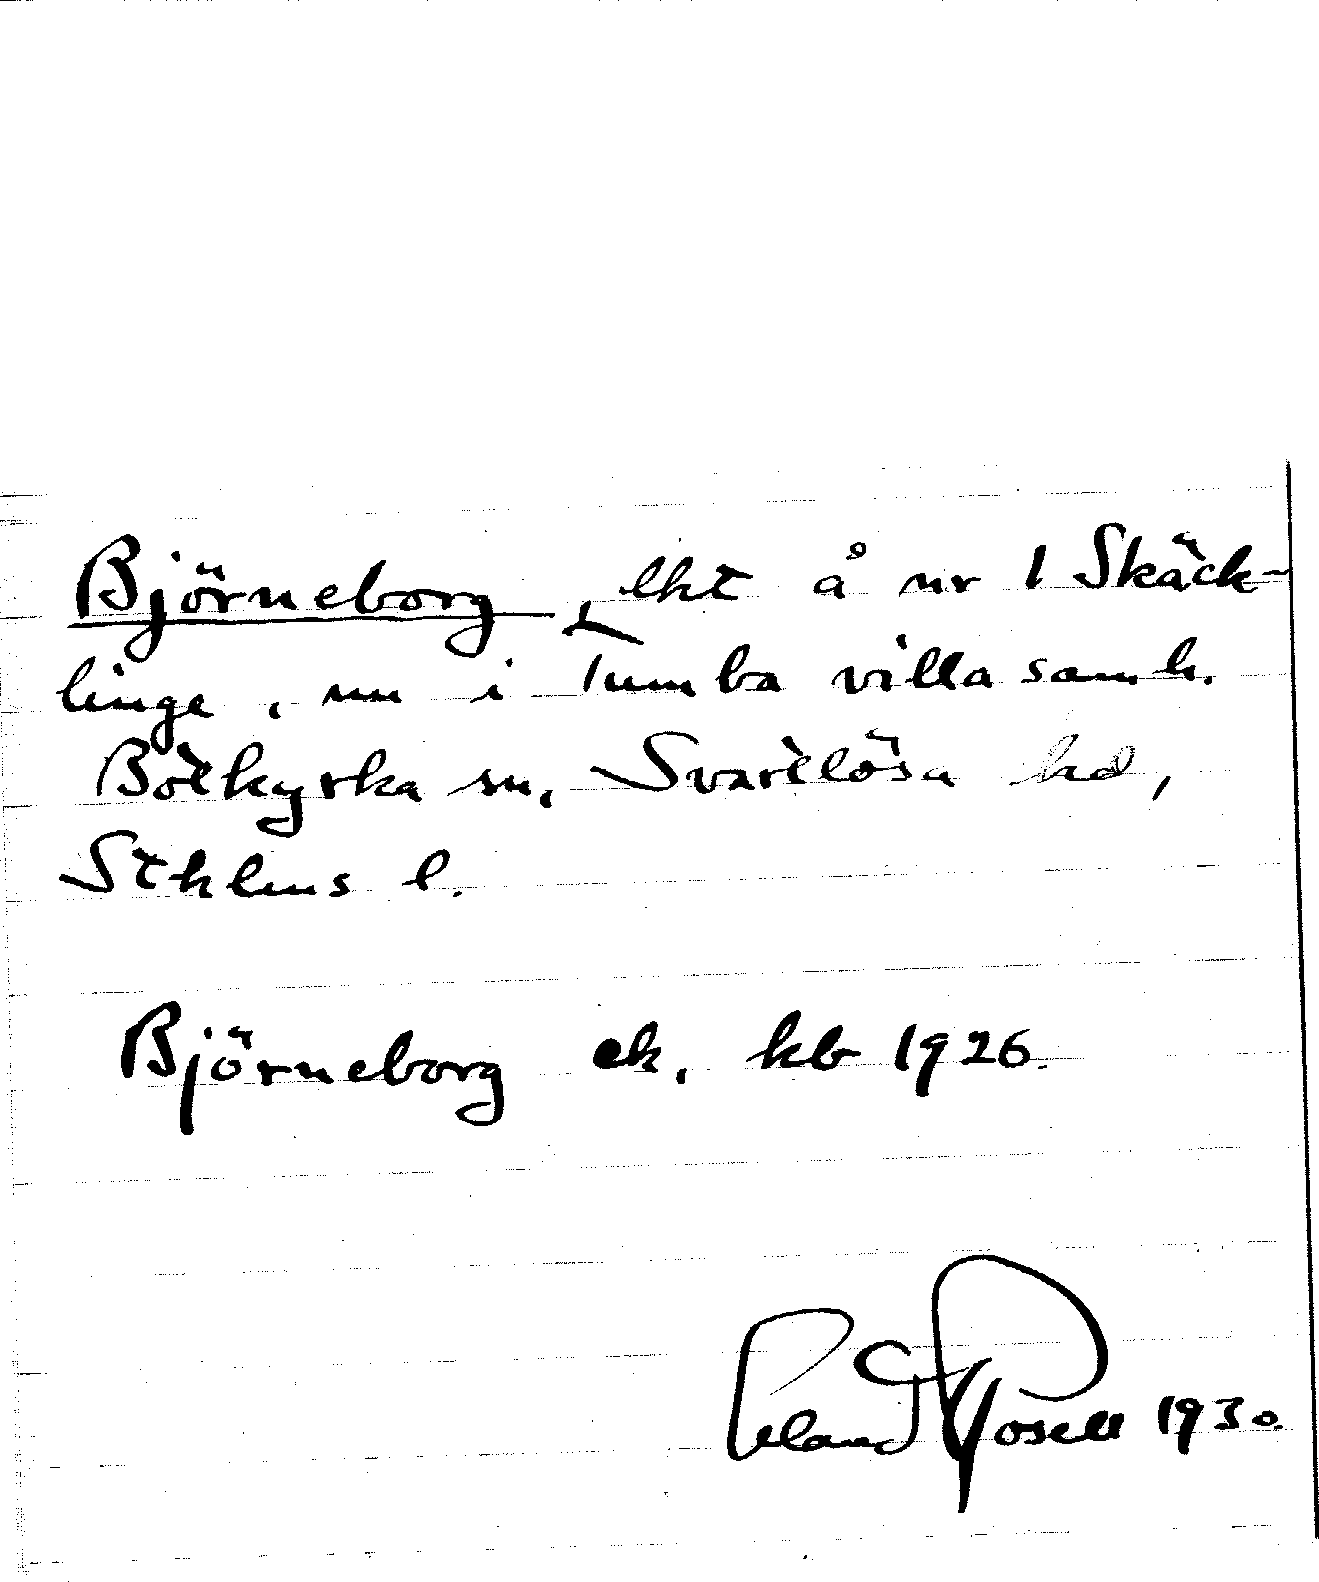 Björneborg, lht å nr 1 Skäck-
linge, nu i Tumba villasamh.
Botkyrka sn, Svartlösa hd,
Sthlms l.
Björneborg ek. kb 1926.
Erland Rosell 1930.